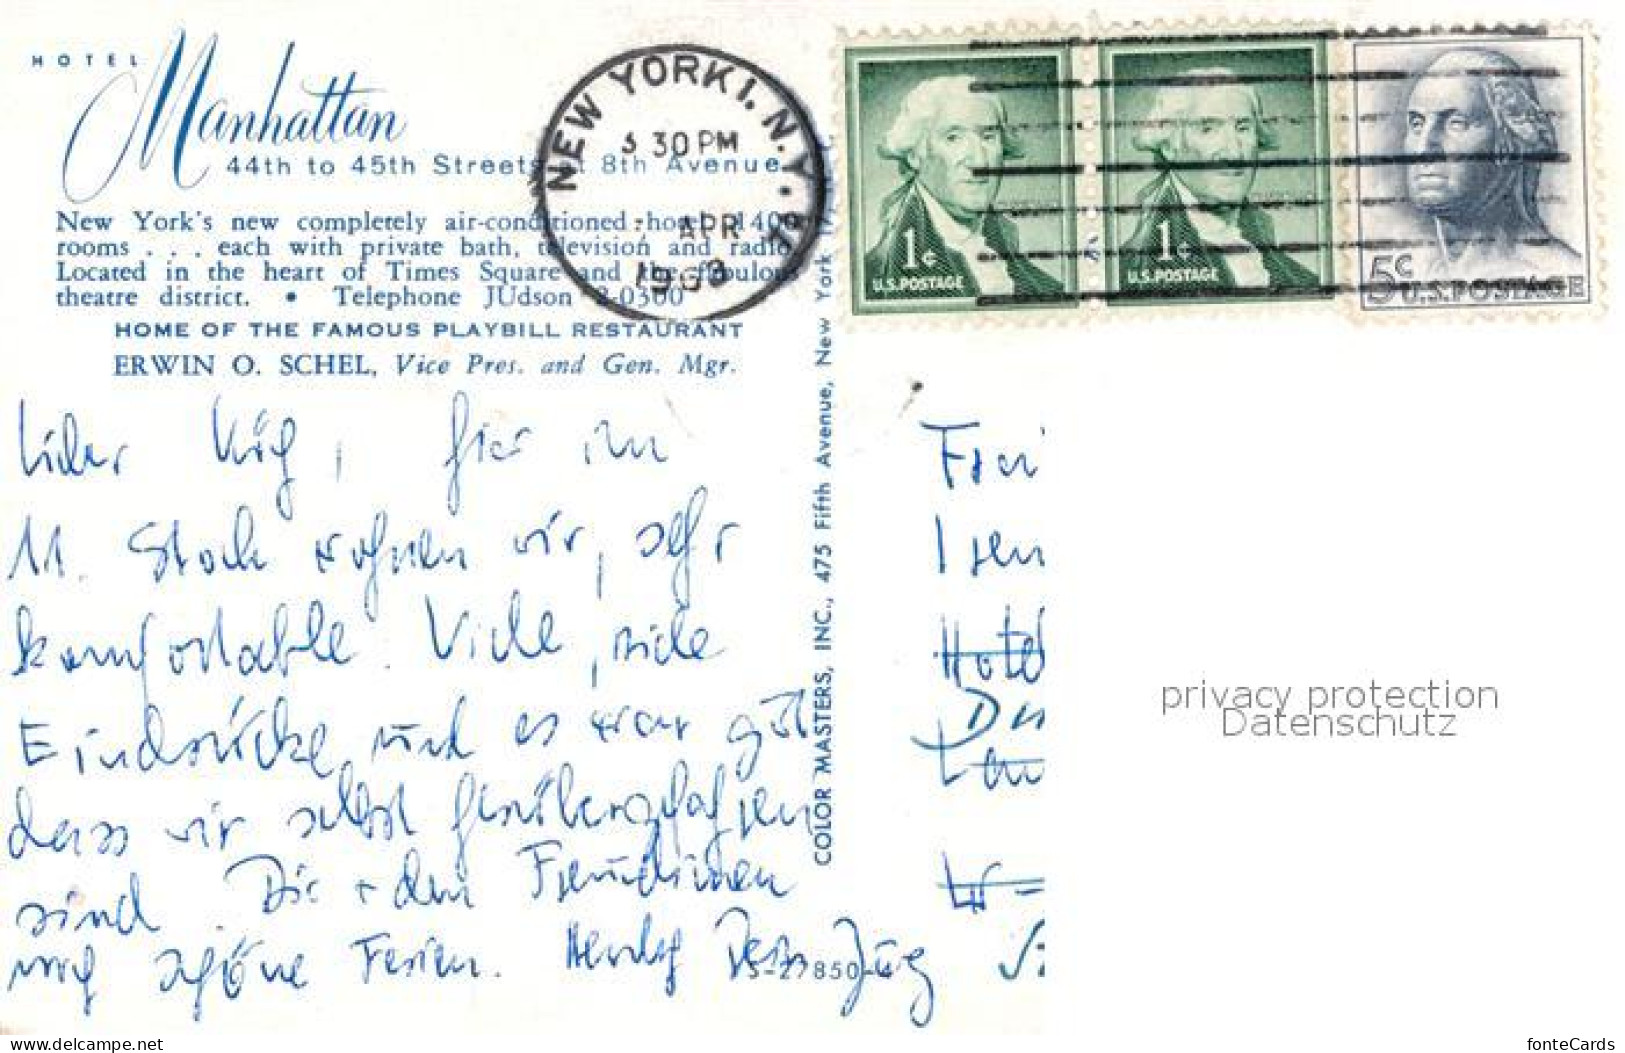 HOTEL
Manhattan
44th to 45th Streets 8th Avenue
New York's new completely air-conditioned hotel 1400
rooms . . . each with private bath, television and radio
Located in the heart of Times Square and the fabulous
theatre district. • Telephone JUdson 2-0300
HOME OF THE FAMOUS PLAYBILL RESTAURANT
ERWIN O. SCHEL, Vice Pres. and Gen. Mgr.
NEW YORK 1, N.Y.
30 PM
APR
1¢
U.S. POSTAGE
1¢
U.S. POSTAGE
5¢
U.S. POSTAGE
COLOR MASTERS, INC., 475 Fifth Avenue, New York
Lieber hier im
11. Stock wohnen wir, sehr
komfortable. Viele, viele
Eindrücke und es war gut
dass wir selbst herübergefahren
sind. Dir + den Freundinnen
noch schöne Ferien.
Hotel
privacy protection
Datenschutz
delcampe.net
fonteCards